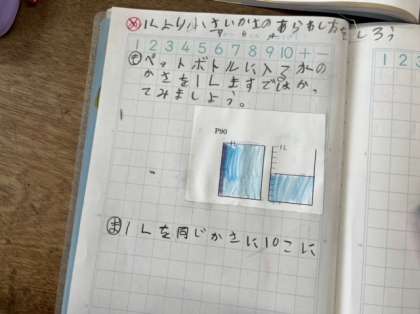 め 1Lより小さいかさのあらわし方をしろう
1 2 3 4 5 6 7 8 9 10 + −
も ペットボトルに入る水の
かさを1Lますではか
ってみましょう。
P90
1L 1L
ま 1Lを同じかさに10こに
1 2 3